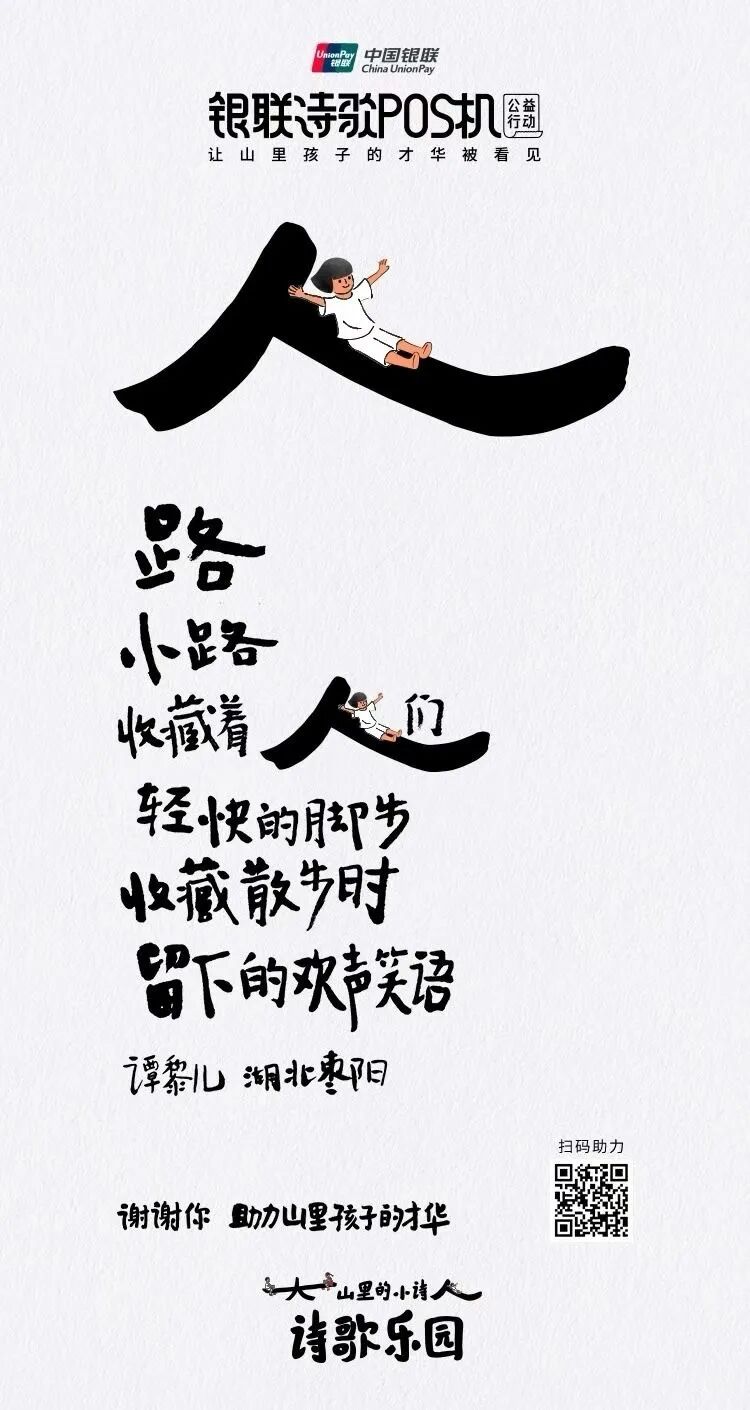 UnionPay 银联 中国银联
China UnionPay
银联诗歌POS机 公益行动
让山里孩子的才华被看见
人
路
小路
收藏着人们
轻快的脚步
收藏散步时
留下的欢声笑语
谭黎儿 湖北枣阳
扫码助力
谢谢你 助力山里孩子的才华
大山里的小诗人
诗歌乐园